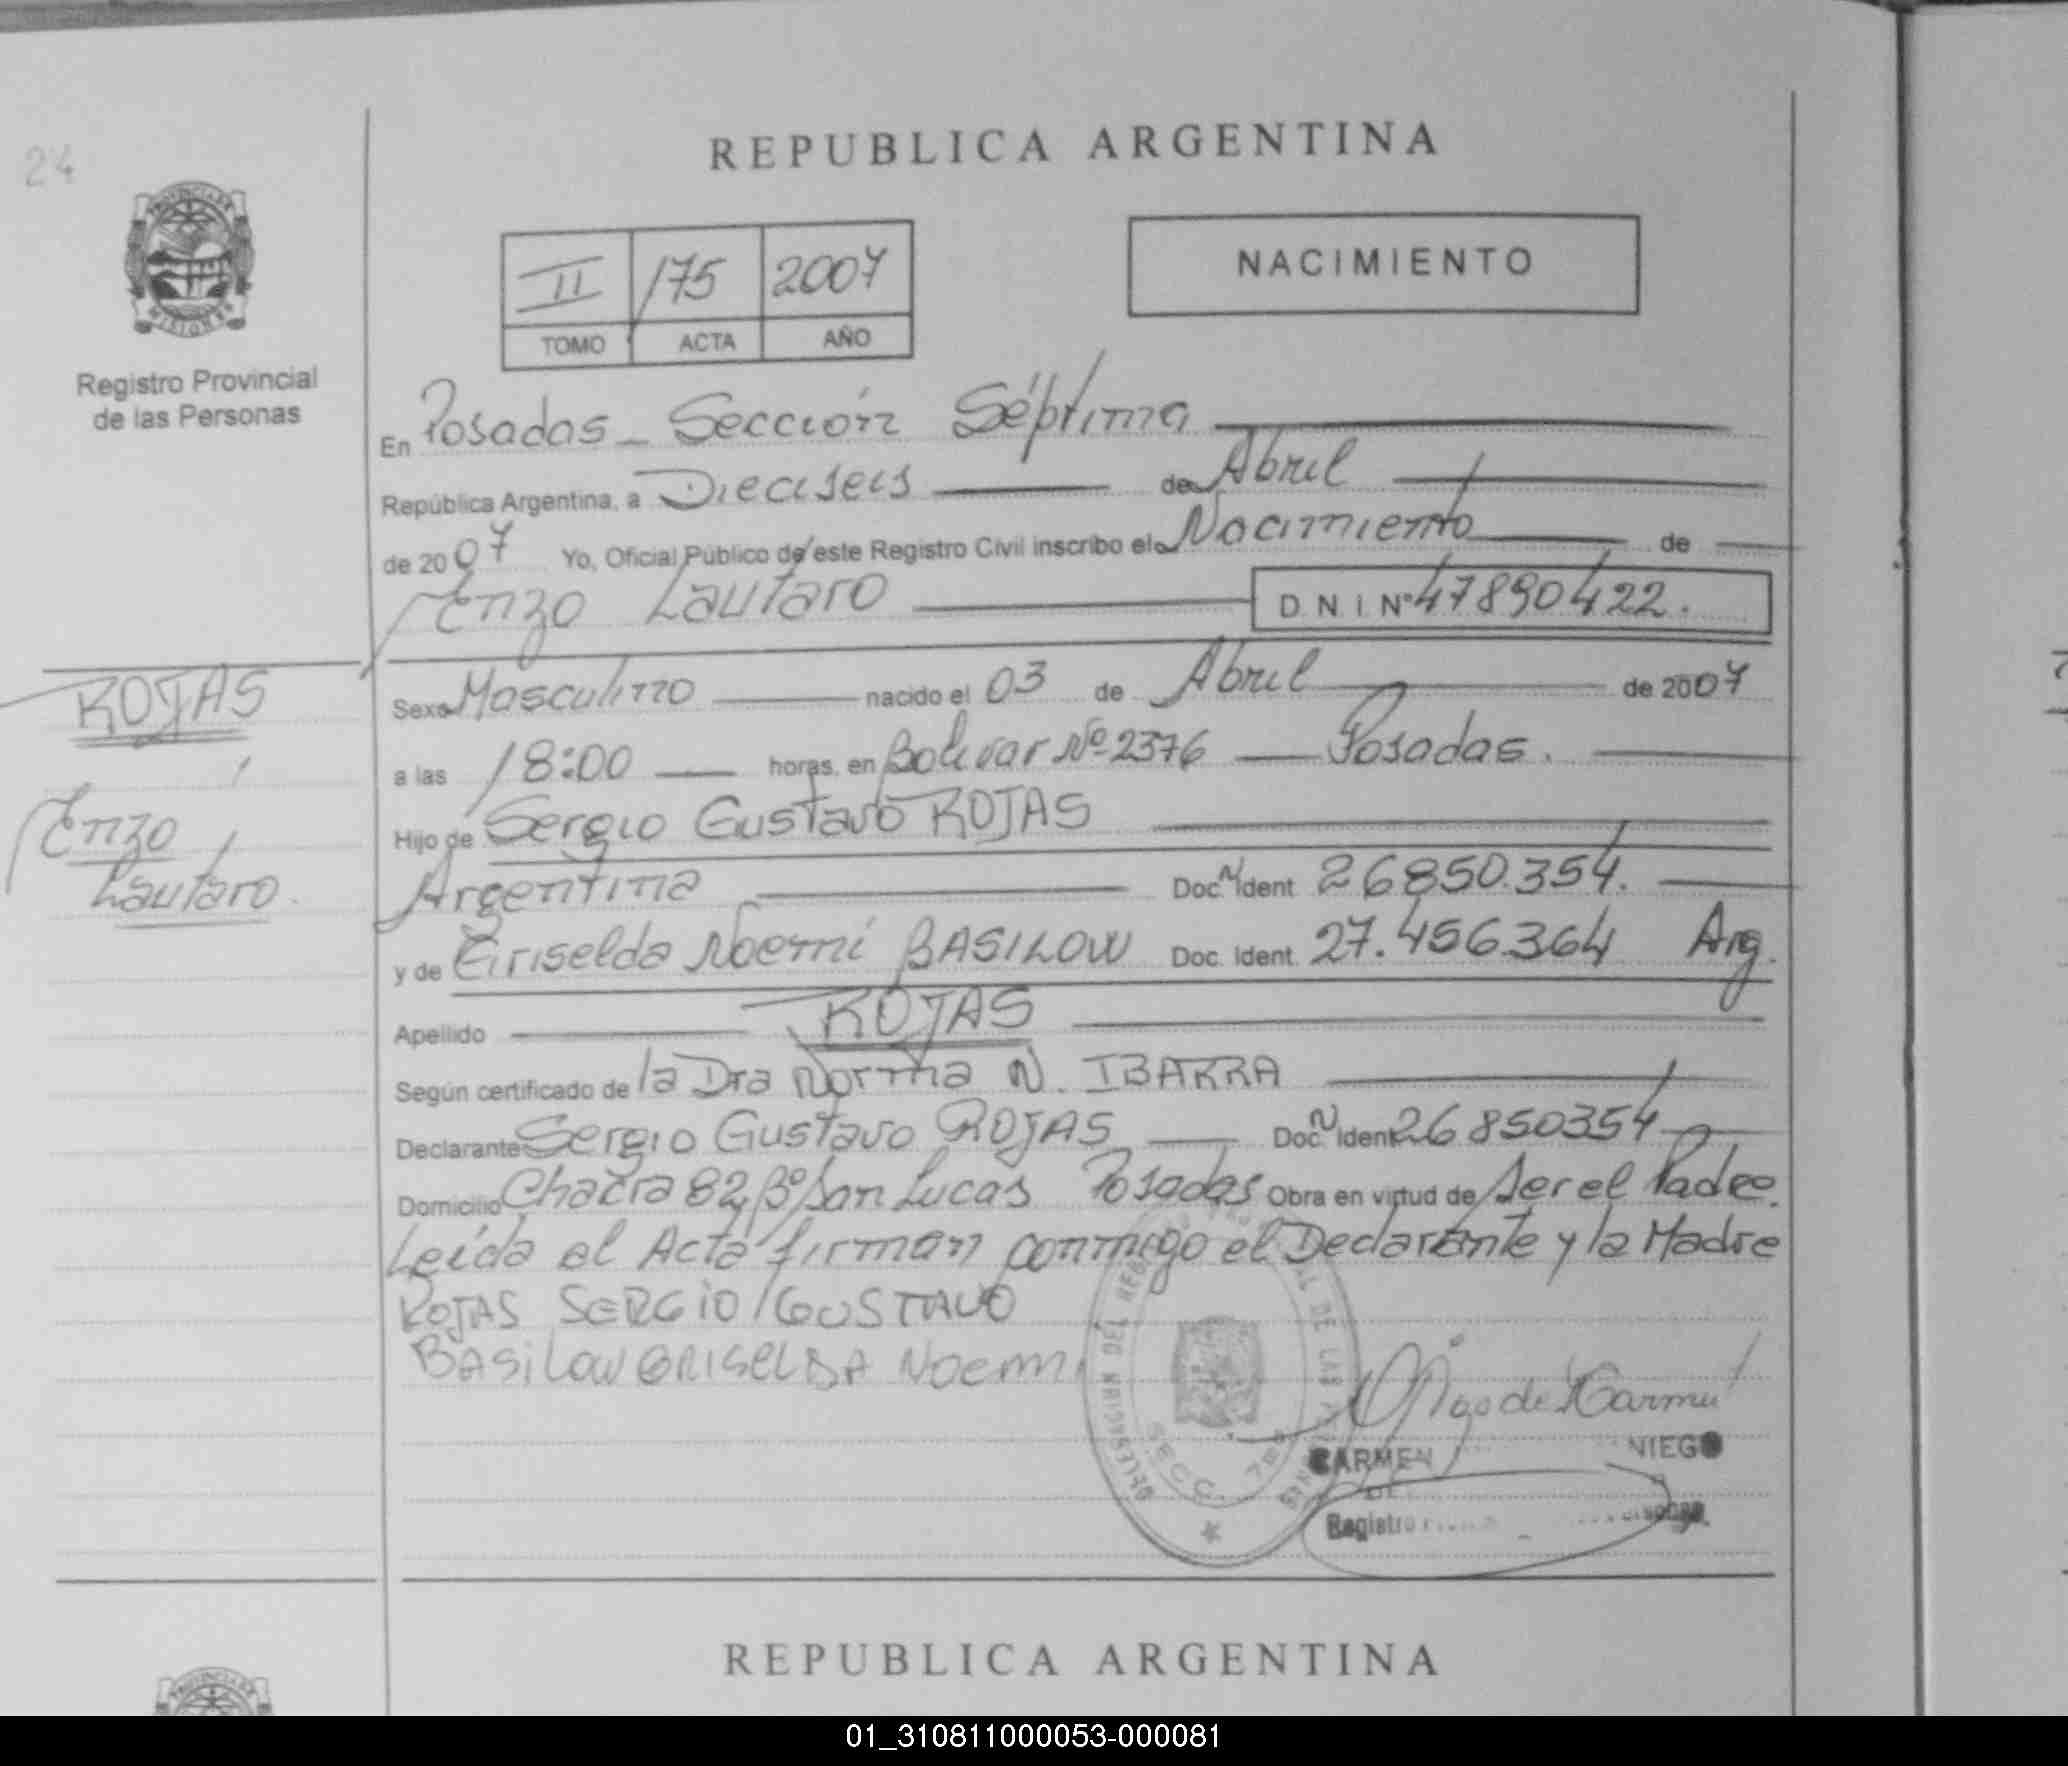 24
REPUBLICA ARGENTINA
PROVINCIA DE
MISIONES
Registro Provincial
de las Personas
II 175 2007
TOMO ACTA AÑO
NACIMIENTO
En Posadas - Sección Séptima
República Argentina, a Dieciseis de Abril
de 2007 Yo, Oficial Público de este Registro Civil inscribo el Nacimiento de
Enzo Lautaro D.N.I. Nº 47890422.
ROJAS
Enzo
Lautaro.
Sexo Masculino nacido el 03 de Abril de 2007
a las 18:00 horas, en Bolivar Nº 2376 Posadas.
Hijo de Sergio Gustavo ROJAS
Argentina Doc. N Ident 26850.354.
y de Griselda Noemí BASILOW Doc. Ident. 27.456.364 Arg.
Apellido ROJAS
Según certificado de la Dra Norma N. IBARRA
Declarante Sergio Gustavo ROJAS Doc. N Ident 26850354
Domicilio Chacra 82 Bº San Lucas Posadas Obra en virtud de ser el Padre.
Leída el Acta firman conmigo el Declarante y la Madre
ROJAS SERGIO GUSTAVO
BASILOW GRISELDA Noemi
DELEGACION DEL REGISTRO PROVINCIAL DE LAS
SECC. 7ma
CARMEN NIEGO
Registro
REPUBLICA ARGENTINA
01_310811000053-000081